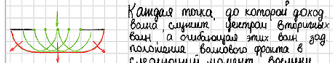 Каждая точка, до которой доход.
волна служит центром вторичных
волн, а огибающая этих волн зад.
положение волнового фронта в
следующий момент времени